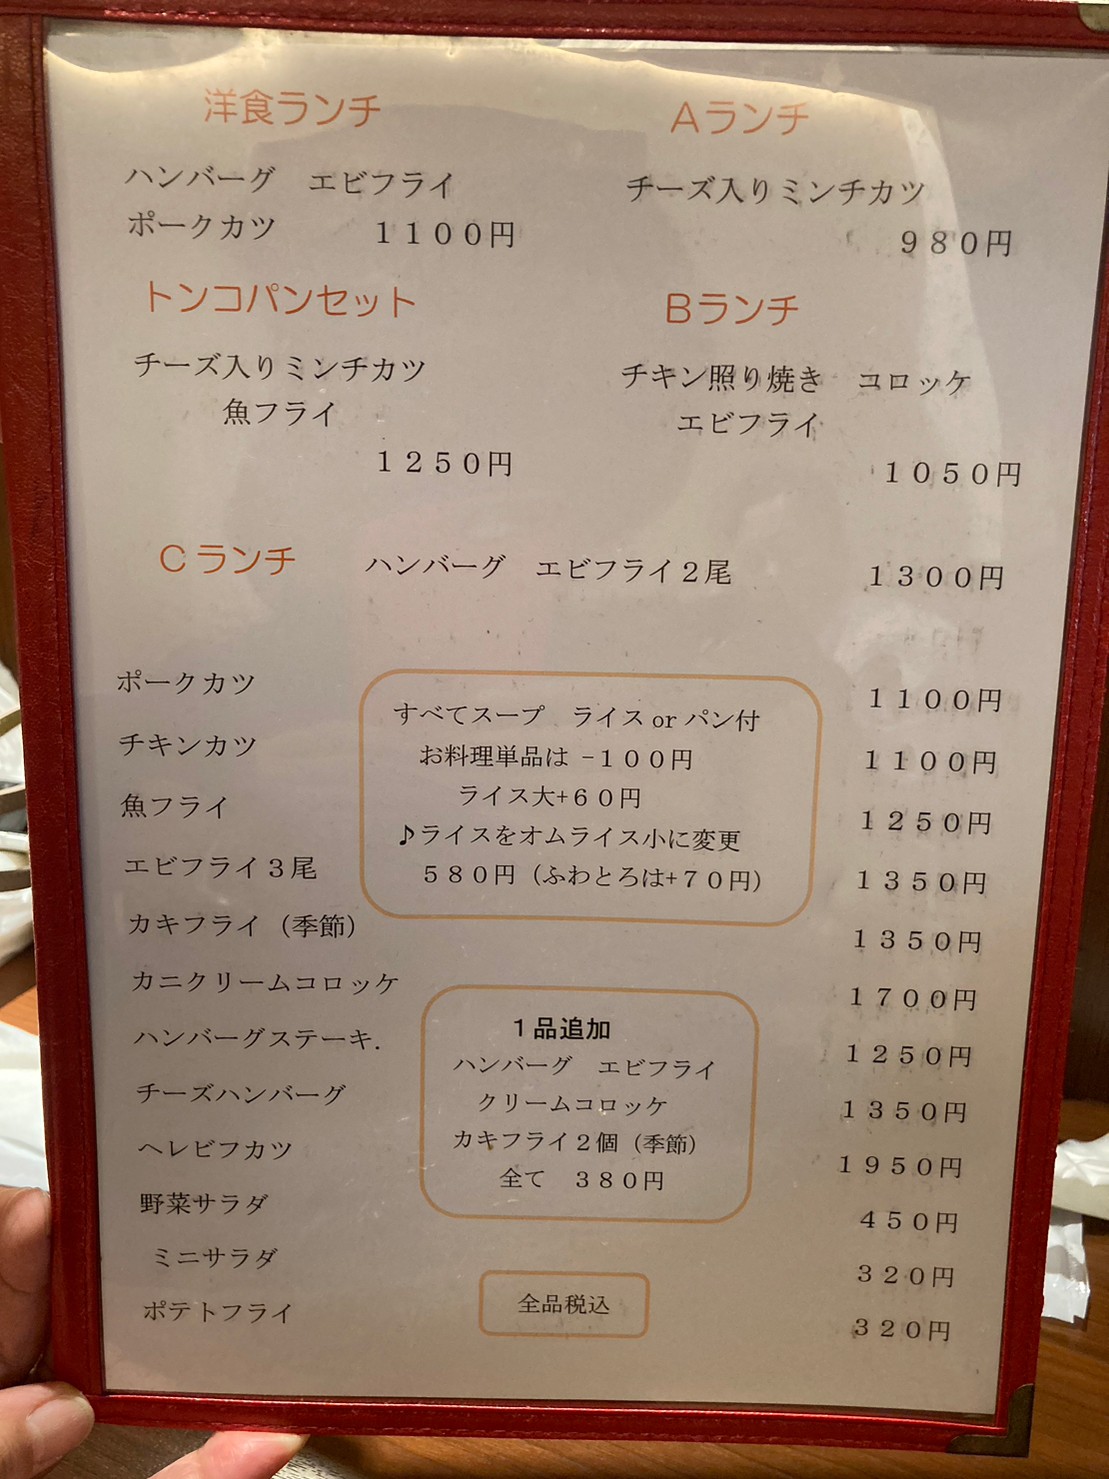 洋食ランチ
ハンバーグ　エビフライ
ポークカツ　１１００円
Ａランチ
チーズ入りミンチカツ
９８０円
トンコパンセット
チーズ入りミンチカツ
魚フライ
１２５０円
Ｂランチ
チキン照り焼き　コロッケ
エビフライ
１０５０円
Ｃランチ　ハンバーグ　エビフライ２尾　１３００円
ポークカツ　１１００円
チキンカツ　１１００円
魚フライ　１２５０円
エビフライ３尾　１３５０円
カキフライ（季節）　１３５０円
カニクリームコロッケ　１７００円
ハンバーグステーキ.　１２５０円
チーズハンバーグ　１３５０円
ヘレビフカツ　１９５０円
野菜サラダ　４５０円
ミニサラダ　３２０円
ポテトフライ　３２０円
すべてスープ　ライス or パン付
お料理単品は −１００円
ライス大+６０円
♪ライスをオムライス小に変更
５８０円（ふわとろは+７０円）
１品追加
ハンバーグ　エビフライ
クリームコロッケ
カキフライ２個（季節）
全て　３８０円
全品税込